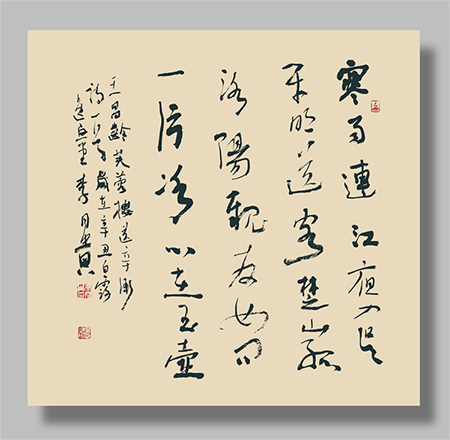 寒雨連江夜入吴
平明送客楚山孤
洛陽親友如相问
一片冰心在玉壺
王昌齡芙蓉樓送辛漸
詩一首歲在辛丑白露
李